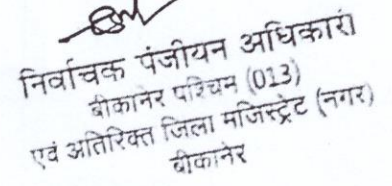 निर्वाचक पंजीयन अधिकारी
बीकानेर पश्चिम (013)
एवं अतिरिक्त जिला मजिस्ट्रेट (नगर)
बीकानेर